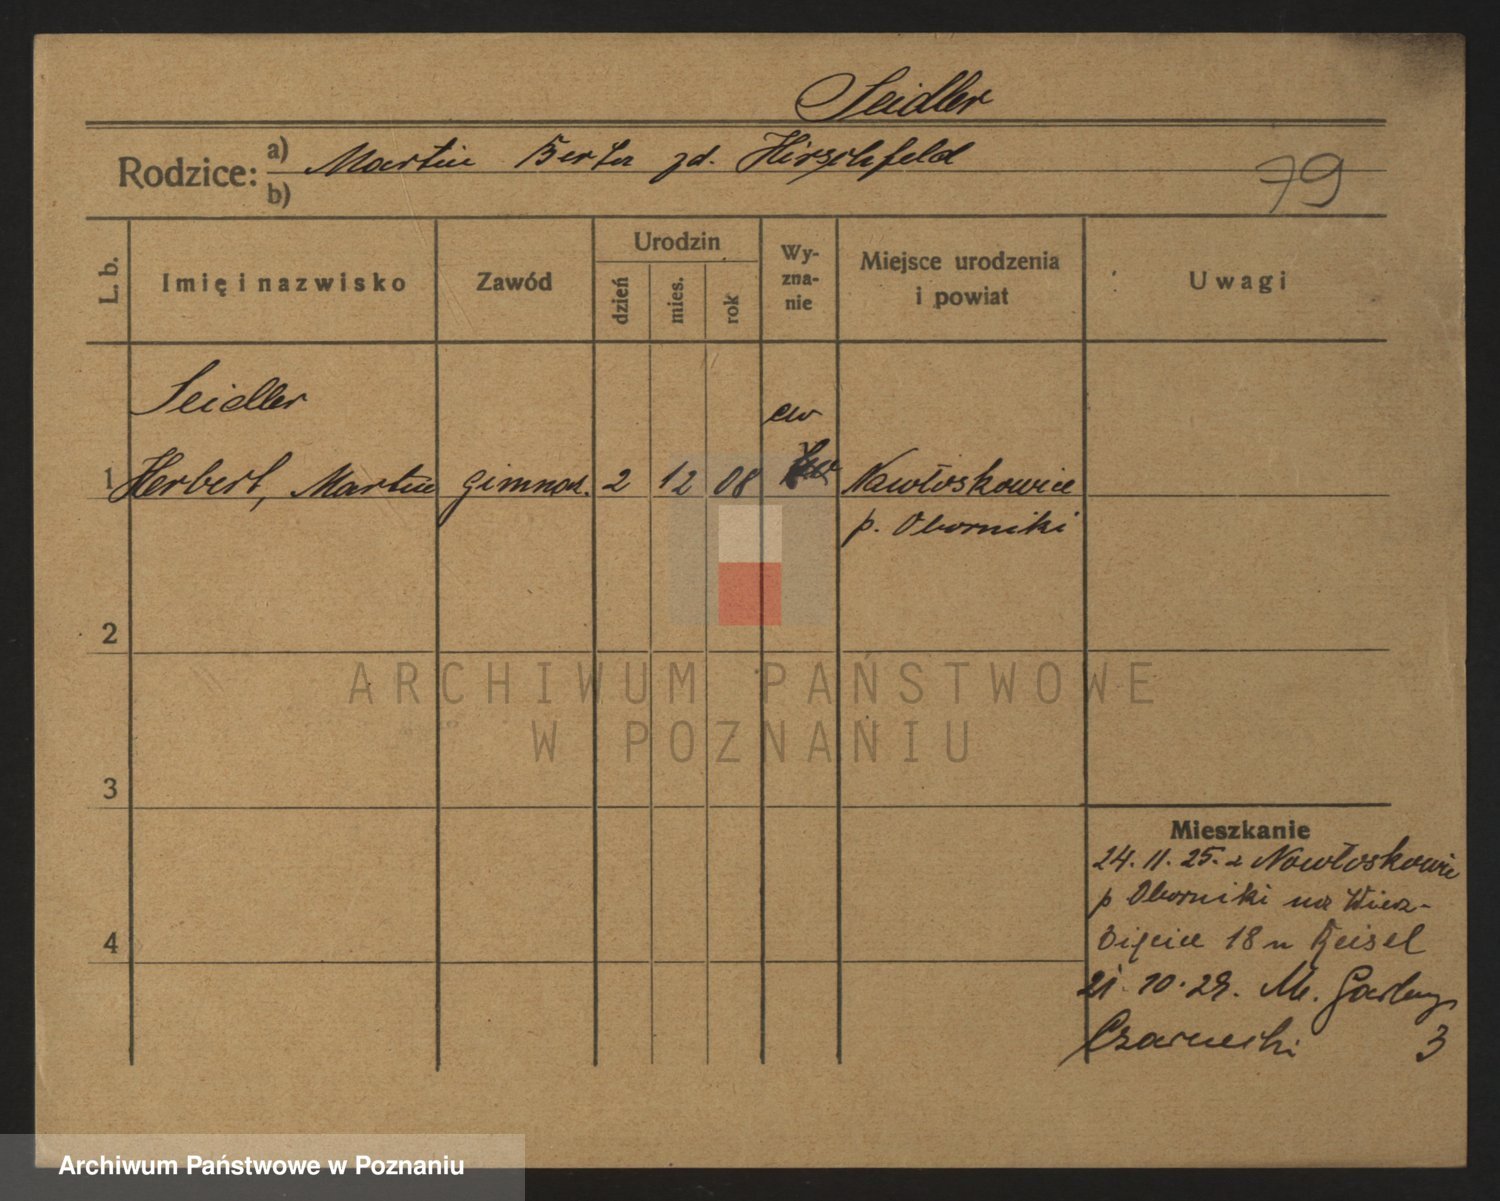 Seidler
Rodzice: a) Martin Berta zd. Hirschfeld
b)
79
L. b.
Imię i nazwisko
Zawód
Urodzin
dzień
mies.
rok
Wy-
zna-
nie
Miejsce urodzenia
i powiat
Uwagi
Seidler
ew
1 Herbert, Martin gimnaz. 2 12 08 Nawłoskowice
p. Oborniki
2
3
4
Mieszkanie
24. 11. 25. z Nawłoskowic
p Oborniki na Wierz-
bięcice 18 u Beisel
21. 10. 29. M. Garbary
Czarnecki 3
ARCHIWUM PAŃSTWOWE
W POZNANIU
Archiwum Państwowe w Poznaniu